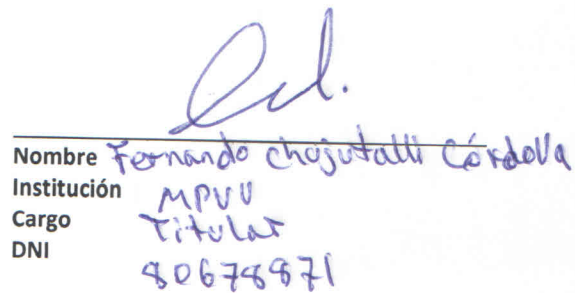 Nombre Fernando chojutalli Córdova
Institución MPVU
Cargo Titular
DNI 80678871